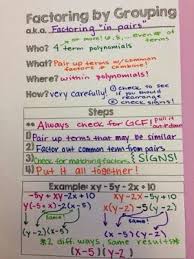 Factoring by Grouping
a.k.a. Factoring "in pairs"
Who? 4 term polynomials
What? Pair up terms w/common
factors & combine!
Where? within polynomials!
How? very carefully!
① check to see
if you should
rearrange
② check signs!
Steps
** Always check for GCF! **
1) Pair up terms that may be similar
2) Factor out common term from pairs
3) Check for matching factors } SIGNS!
4) Put it all together!
Example: xy - 5y - 2x + 10
xy-5y + -2x+10
y(x-5) -2(x-5)
same!
(x-5)(y-2)
xy-2x -5y+10
x(y-2) -5(y-2)
same!
*2 diff. ways, same results*
(x-5)(y-2)